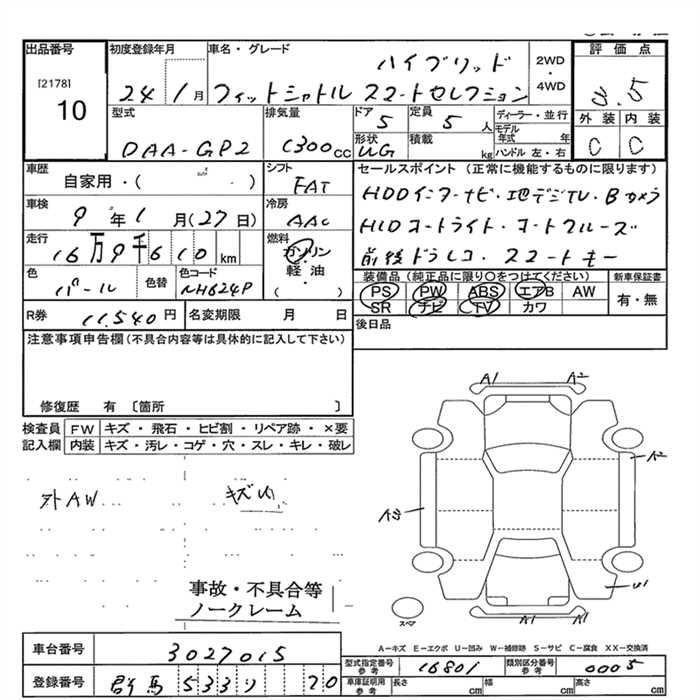 出品番号 初度登録年月 車名・グレード ハイブリッド 2WD ・ 4WD 評価点
[2178] 10 24 1月 フィットシャトル スマートセレクション 3.5
型式 排気量 ドア 5 定員 5人 ディーラー・並行 外装 内装
DAA-GP2 1300cc 形状 WG 積載 kg モデル年式 年 ハンドル 左・右 C C
車歴 自家用・( ) シフト FAT セールスポイント (正常に機能するものに限ります)
車検 9年1月(27日) 冷房 AAC HDDインターナビ・地デジTV・Bカメラ
HIDオートライト・オートクルーズ
走行 16万9千610km 燃料 ガソリン・軽油 ( ・ ) 前後ドラレコ・スマートキー
色 パール 色替 色コード NH624P 装備品 (純正品に限り○をつけてください) 新車保証書
PS PW ABS エアB AW 有・無
SR ナビ TV カワ
R券 11,540円 名変期限 月 日 後日品
注意事項申告欄(不具合内容等は具体的に記入して下さい)
修復歴 有 〔箇所 〕
検査員 FW キズ・飛石・ヒビ割・リペア跡・×要
記入欄 内装 キズ・汚レ・コゲ・穴・スレ・キレ・破レ
A1 A2
A2
外AW キズ
A3
U1
事故・不具合等
ノークレーム
スペア A1 A1
A−キズ E−エクボ U−凹み W−補修跡 S−サビ C−腐食 XX−交換済
車台番号 3027015 型式指定番号 参考 16801 類別区分番号 参考 0005
登録番号 群馬 533 り 20 車庫証明用 参考 長さ cm 幅 cm 高さ cm